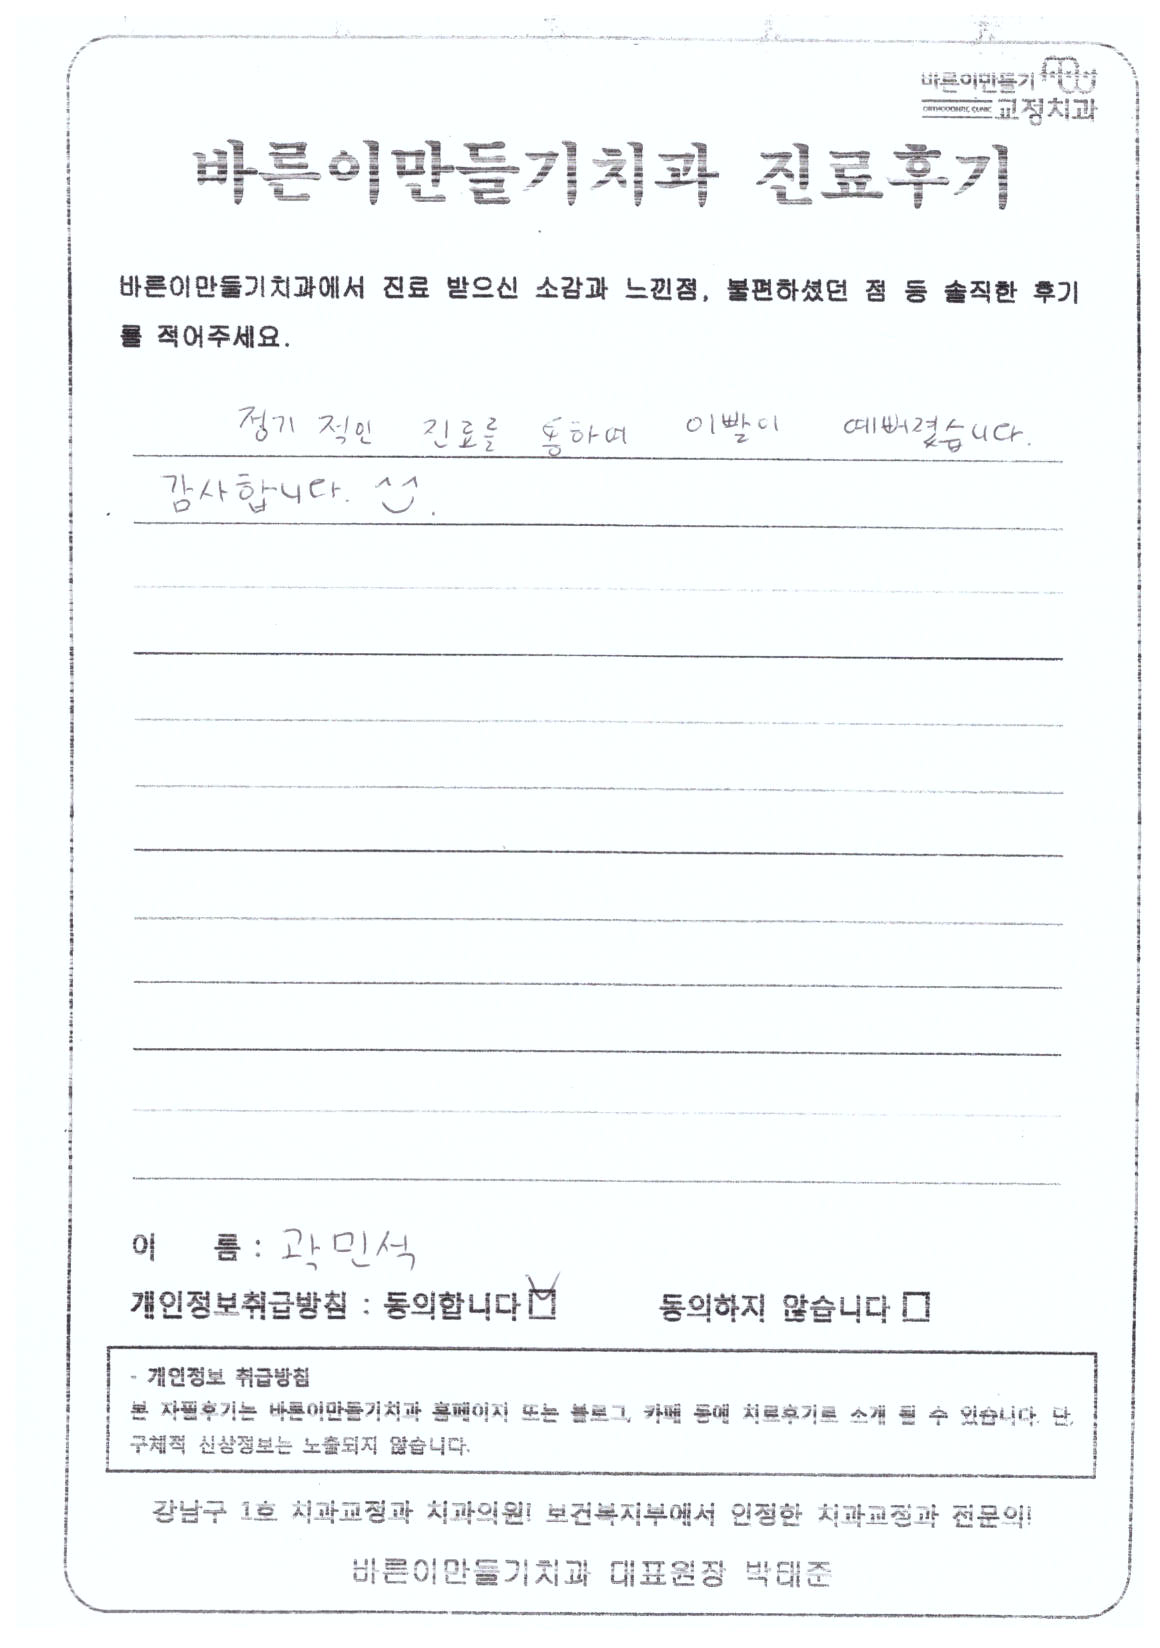 바른이만들기
ORTHODONTIC CLINIC 교정치과
바른이만들기치과 진료후기
바른이만들기치과에서 진료 받으신 소감과 느낀점, 불편하셨던 점 등 솔직한 후기
를 적어주세요.
정기적인 진료를 통하여 이빨이 예뻐렸습니다.
감사합니다. ^^.
이 름 : 곽민석
개인정보취급방침 : 동의합니다 동의하지 않습니다
- 개인정보 취급방침
본 자필후기는 바른이만들기치과 홈페이지 또는 블로그, 카페 등에 치료후기로 소개 될 수 있습니다. 단,
구체적 신상정보는 노출되지 않습니다.
강남구 1호 치과교정과 치과의원! 보건복지부에서 인정한 치과교정과 전문의!
바른이만들기치과 대표원장 박태준